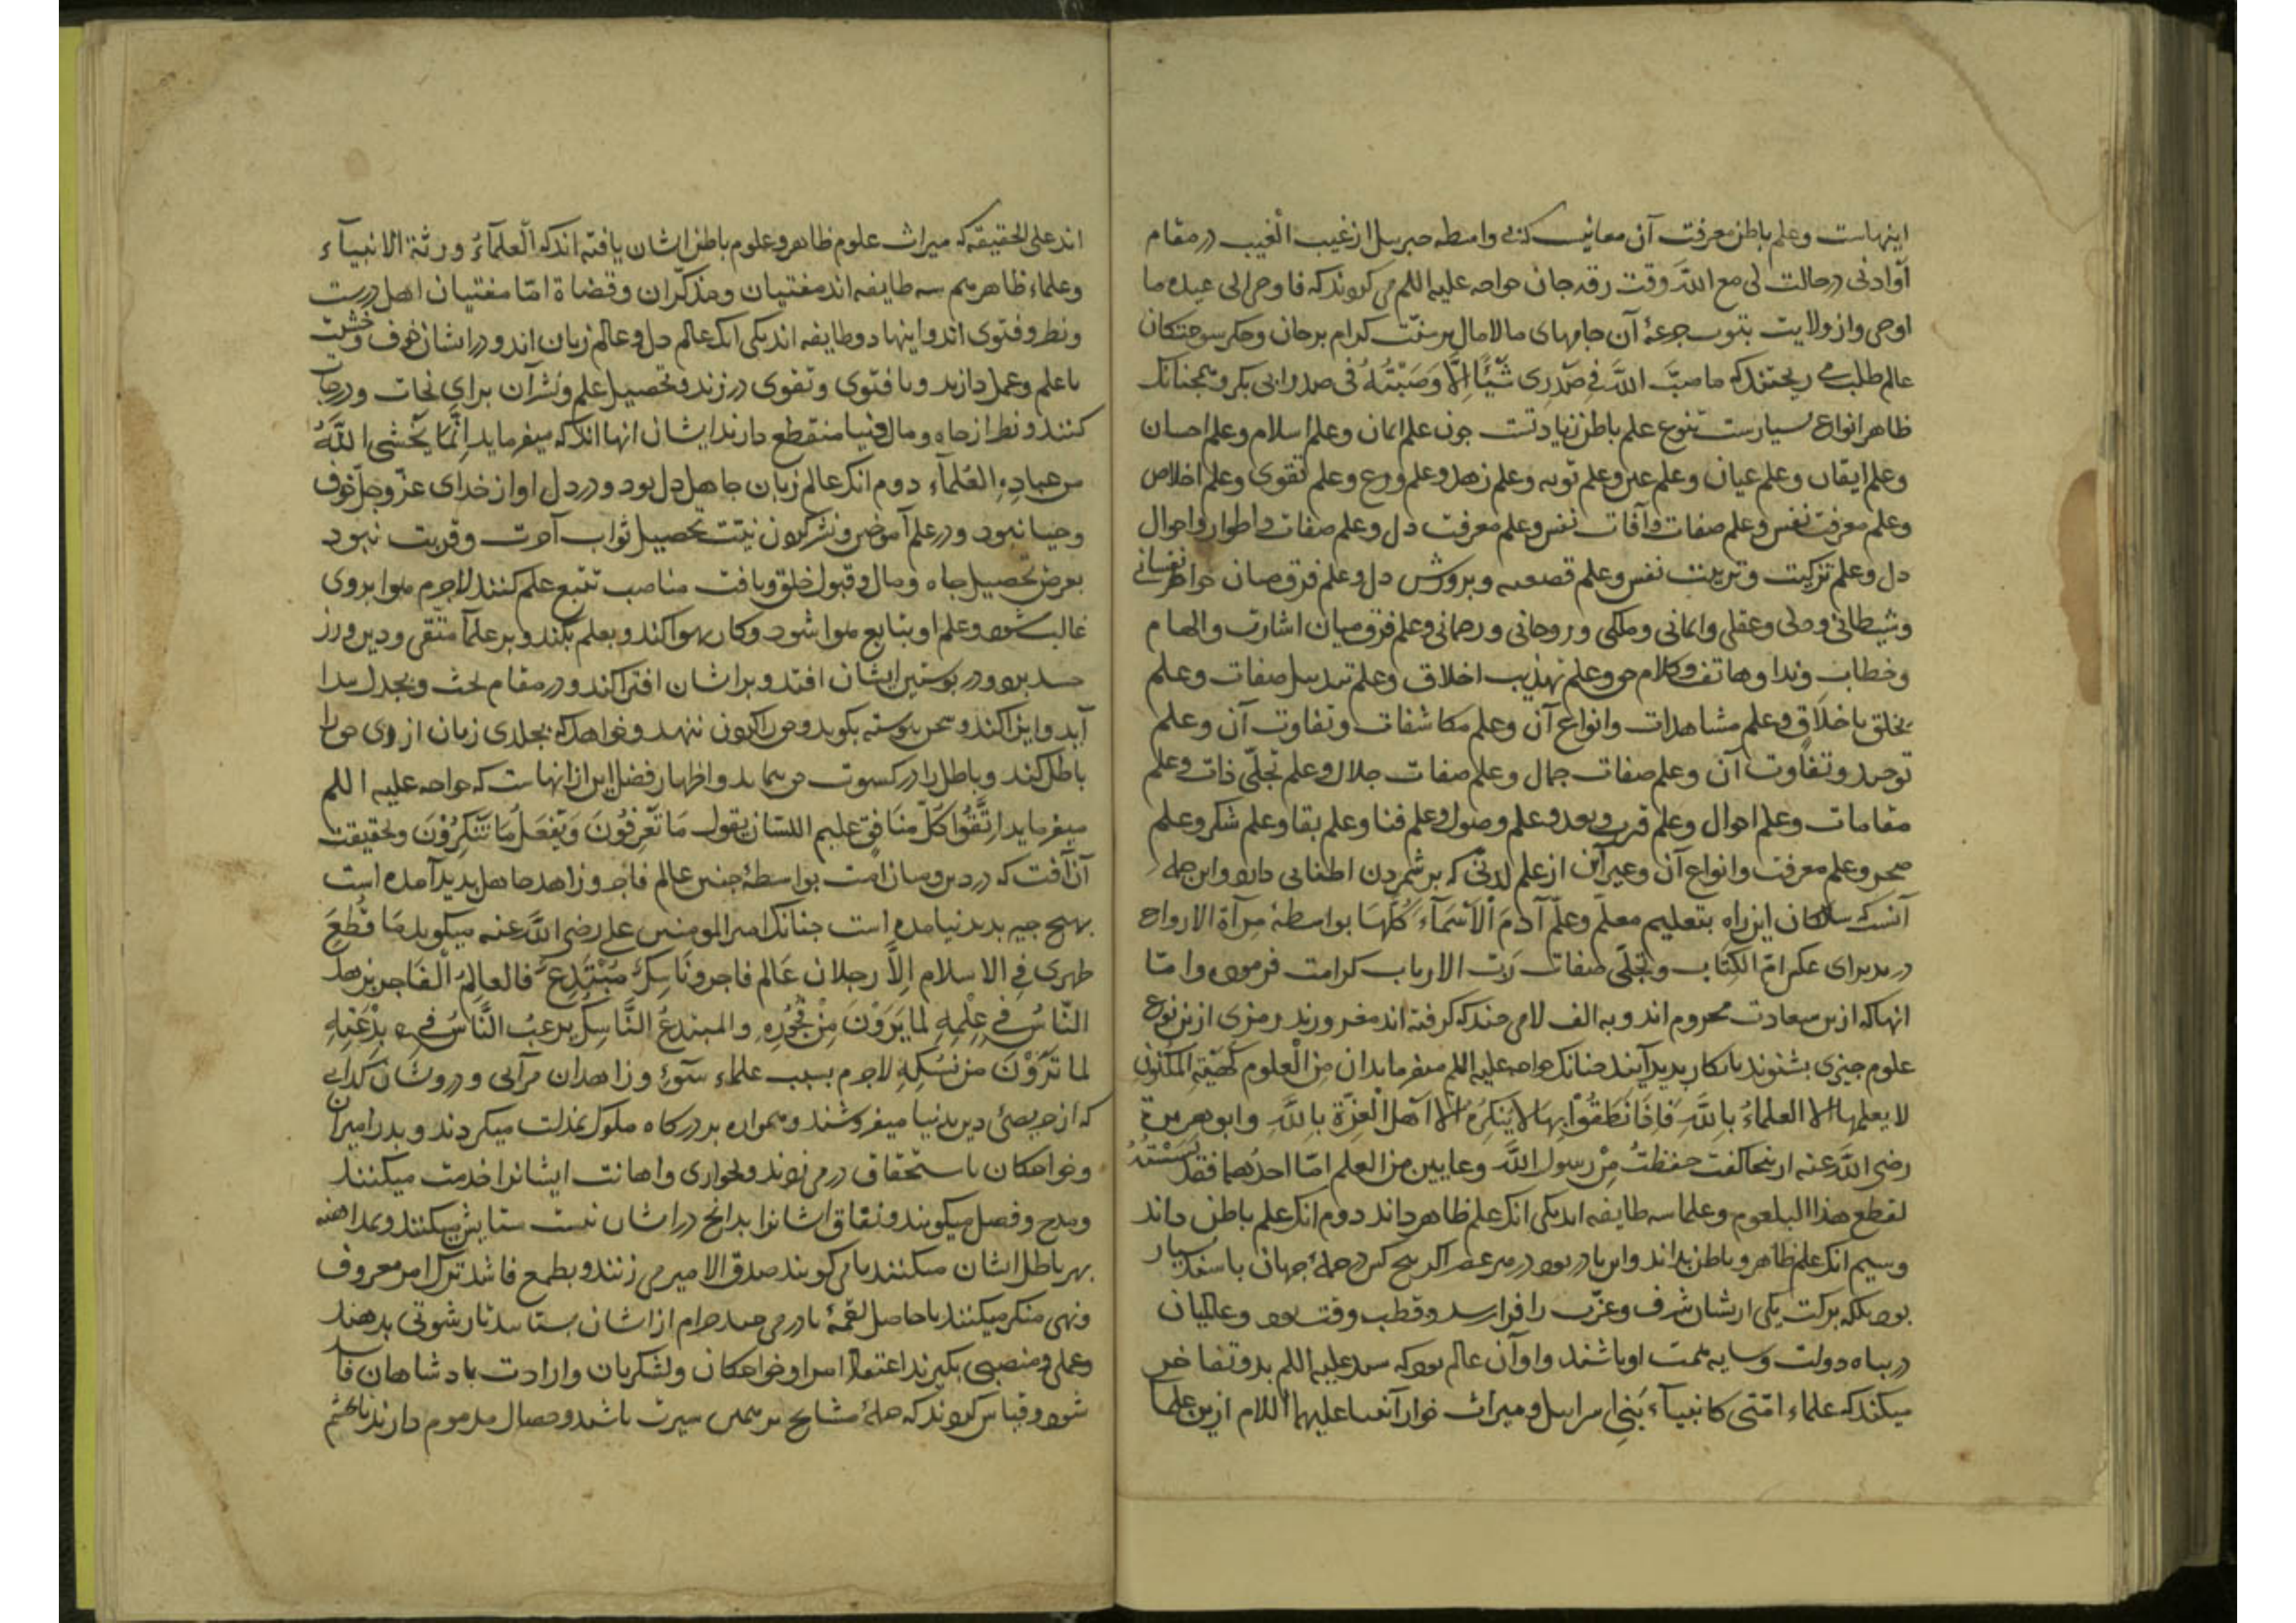 اینهاست وعلم باطن معرفت آن معانیست که بی واسطه جبرییل از غیب الغیب در مقام
آوادنی در حالت لی مع الله وقت زقه جان خواجه علیه السلم می کردند که فاوحی الی عبده ما
اوحی واز ولایت نبوت جرعهٔ آن جامهای مالامال بر سنّت کرام بر جان وجکر سوختکان
عالم طلب می ریختند که ما صبّ اللّه فی صَدْرِی شَیْئًا اِلَّا وَصَبَبْتُهُ فی صدر ابی بکر وهمچنانک
ظاهر انواع بسیارست تنوع علم باطن زیادتست جون علم ایمان وعلم اسلام وعلم احسان
وعلم ایقان وعلم عیان وعلم عین وعلم توبه وعلم زهد وعلم ورع وعلم تقوی وعلم اخلاص
وعلم معرفت نفس وعلم صفات وآفات نفس وعلم معرفت دل وعلم صفات واطوار واحوال
دل وعلم تزکیت وتربیت نفس وعلم تصفیه وپرورش دل وعلم فرق میان خواطر نفسانی
وشیطانی ودلی وعقلی وایمانی وملکی وروحانی ورحمانی وعلم فرق میان اشارت والهام
وخطاب وندا وهاتف وکلام حق وعلم تهذیب اخلاق وعلم تبدیل صفات وعلم
تخلق باخلاق وعلم مشاهدات وانواع آن وعلم مکاشفات وتفاوت آن وعلم
توحید وتفاوت آن وعلم صفات جمال وعلم صفات جلال وعلم تجلّی ذات وعلم
مقامات وعلم احوال وعلم قرب وبعد وعلم وصول وعلم فنا وعلم بقا وعلم شکر وعلم
صحو وعلم معرفت وانواع آن وغیر آن از علم لدنّی که بر شمردن اطنابی دارد واین جمله
آنست که سالکان این راه بتعلیم معلّم وعلّم آدمَ الْاَسْمَآءَ کُلَّهَا بواسطهٔ مرآة الارواح
در بدبرای علم امّ الکتاب وتجلّی صفات ربّ الارباب کرامت فرمود وامّا
انها که ازین سعادت محروم اند وبه الف لامی چند که کرفته اند مغرورند رمزی ازین نوع
علوم جیزی بشنوند بانکار پدید آیند جنانک خواجه علیه السلم میفرماید ان من الْعلوم کهیئة المکنون
لا یعلمها الا العلماءُ بِاللّهِ فَاِذَا نَطَقُوْا بِهَا لا یُنْکِرُهُ اِلّا اَهْلُ الْغِرَّةِ بِاللّهِ وابو هریرة
رضی اللّه عنه ازینجا کفت حَفِظْتُ مِنْ رسولِ اللّهِ وعایین من العلم امّا احدُهما فقد بَثَثْتُهُ
لقطع هذا البلعوم وعلما سه طایفه اند یکی انک علم ظاهر داند دوم انک علم باطن داند
وسیم انک علم ظاهر وباطن بداند واین نادر بود در هر عصر اکر پنج کس در جملهٔ جهان باشند بسیار
بود بلکه برکت یکی ازیشان شرق وغرب را فرا رسد وقطب وقت بود وعالمیان
در پناه دولت وسایه همت او باشند واو آن عالم بود که سید علیه السلم بدو تفاخر
میکند که علماء امّتی کانبیآء بَنِی اسراییل ومیراث خوار انبیا علیهم السلام ازین علما
اند علی الحقیقه که میراث علوم ظاهر وعلوم باطن ایشان یافته اند که الْعلمآءُ ورثة الانبیآء
وعلماء ظاهر هم سه طایفه اند مفتیان ومذکّران وقضاة امّا مفتیان اهل درست
ونظر وفتوی اند واینها دو طایفه اند یکی انک عالم دل وعالم زبان اند ودر ایشان خوف وخشیت
با علم وعمل دارند وبا فتوی وتقوی ورزند وتحصیل علم ونشر آن برای نجات ودرجات
کنند ونظر از جاه ومال دنیا منقطع دارند ایشان انها اند که میفرماید اِنَّمَا یَخْشَی اللّهَ
من عبادِهِ الْعُلمآء دوم انک عالم زبان جاهل دل بود ودر دل او از خدای عزّ وجلّ خوف
وحیا نبود ودر علم آموختن ونشر کردن نیّت تحصیل ثواب آخرت وقربت نبود
بغرض تحصیل جاه ومال وقبول خلق ویافت مناصب تتبع علم کنند لاجرم هوا بروی
غالب شود وعلم او بتابع هوا شود وکار بهوا کند وبعلم نکند وبر علمآ متّقی ودین ورز
حسد برد ودر پوستین ایشان افتد وبر ایشان افترا کند ودر مقام بحث وبجدل پیدا
آید وایذا کند وسخن پیوسته بکوید وحق را کردن ننهد وخواهد که بجلدی زبان از وی حق را
باطل کند وباطل را در کسوت حق نماید واظهار فضل این از انهاست که خواجه علیه السلم
میفرماید اِتَّقُوا کُلَّ مُنَافِقٍ علیم اللسان یقول مَا تَعْرِفُوْنَ وَیَفْعَلُ مَا تُنْکِرُوْنَ وبحقیقت
آن آفت که در دین ومیان امّت بواسطهٔ جنین عالم فاجر وزاهد جاهل پدید آمده است
بهیچ جیز پدید نیامده است جنانک امیر المومنین علی رضی اللّه عنه میکوید مَا قَطَعَ
ظهری فِی الاسلام اِلَّا رجلان عَالم فاجر ونَاسِکٌ مُبْتَدِعٌ فالعالِمُ الْفَاجر یزهد
النّاسُ فی عِلْمِهِ لمَا یَرَوْنَ مِنْ فُجُوْرِهِ والمبتدعُ النَّاسِکُ یرغبُ النّاسُ فی بِدْعَتِهِ
لما تَرَوْنَ من نُسُکِهِ لاجرم بسبب علماء سَوْءِ وزاهدان مرآیی ودرویشان کدایی
که از حریصی دین بدنیا میفروشند وهمواره بدرکاه ملوک بمذلت میکردند وبدر امیران
وخواجکان باستحقاق در می روند وبخواری واهانت ایشانرا خدمت میکنند
ومدح وفصل میکویند ونفاق ایشانرا بدانچ در ایشان نیست ستایش میکنند وبمداهنه
بهر باطل ایشان میکنند یا می کویند صدق الامیر می زنند وبطمع فاسد ترک امر معروف
ونهی منکر میکنند تا حاصل لقمهٔ یا درمی چند حرام از ایشان بستانند تا رشوتی بدهند
وعملی ومنصبی بکیرند اعتقاد امرا وخواجکان ولشکریان وارادت پادشاهان فا
شود وقیاس کردند که جملهٔ مشایخ بر همین سیرت باشند وخصال مذموم دارند تا بچشم